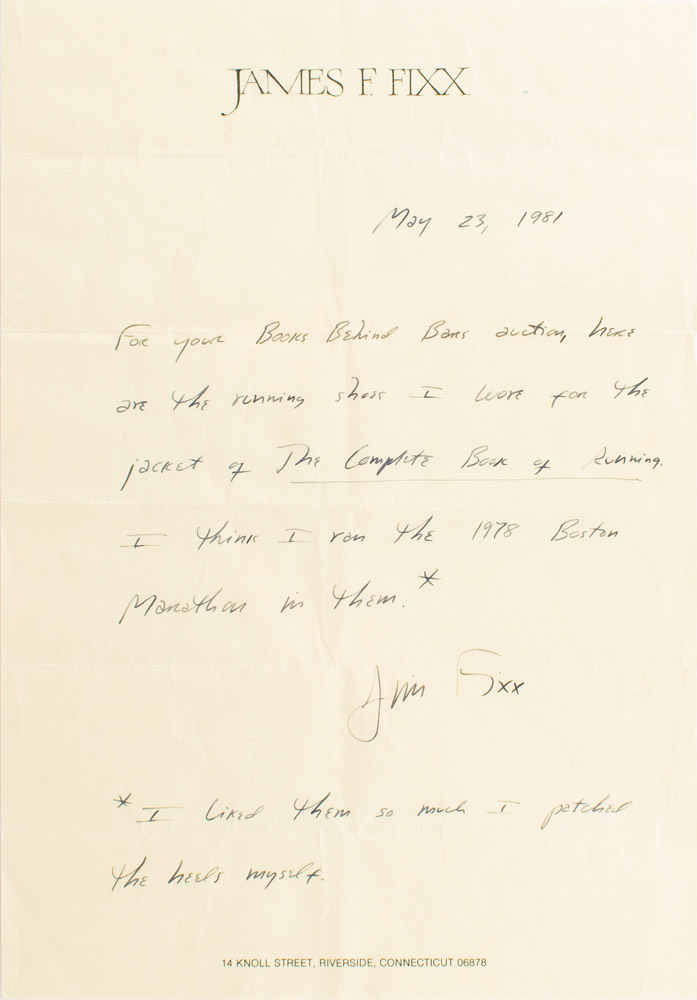 JAMES F. FIXX
May 23, 1981
For your Books Behind Bars auction, here
are the running shoes I wore for the
jacket of The Complete Book of Running.
I think I ran the 1978 Boston
Marathon in them.*
Jim Fixx
* I liked them so much I patched
the heels myself.
14 KNOLL STREET, RIVERSIDE, CONNECTICUT 06878